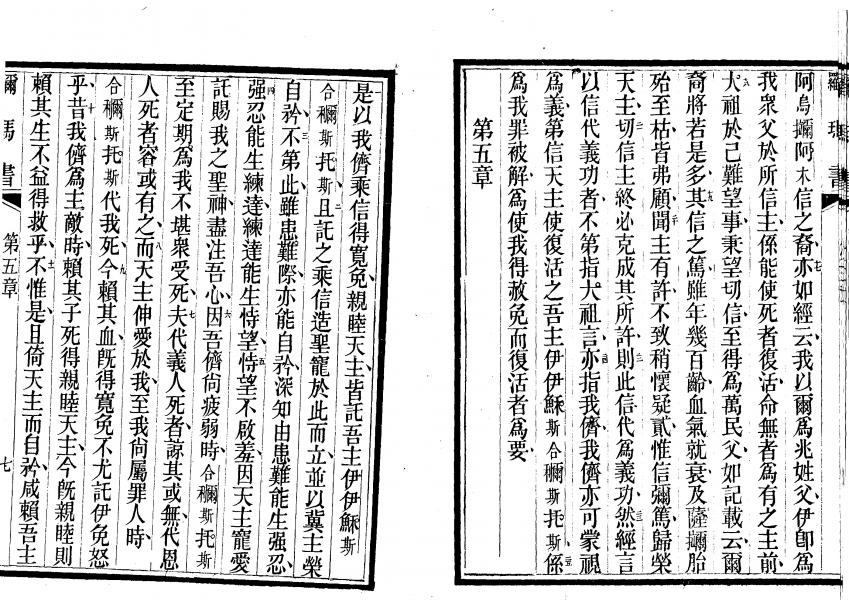 阿烏擸阿木信之裔亦如經云我以爾爲兆姓父伊卽爲
我眾父於所信主係能使死者復活命無者爲有之主前
大祖於己難望事秉望切信至得爲萬民父如記載云爾
裔將若是多其信之篤雖年幾百齡血氣就衰及薩擸胎
殆至枯皆弗顧聞主有許不致稍懷疑貳惟信彌篤歸榮
天主切信主終必克成其所許則此信代爲義功然經言
以信代義功者不第指大祖言亦指我儕我儕亦可蒙視
爲義第信天主使復活之吾主伊伊穌斯合穪斯托斯係
爲我罪被解爲使我得赦免而復活者爲要
第五章
是以我儕乘信得寬免親睦天主皆託吾主伊伊穌斯
合穪斯托斯且託之乘信造聖寵於此而立並以冀主榮
自矜不第此雖患難際亦能自矜深知由患難能生强忍
强忍能生練達練達能生恃望恃望不啟羞因天主寵愛
託賜我之聖神盡注吾心因吾儕尙疲弱時合穪斯托斯
至定期爲我不堪眾受死夫代義人死者諒其或無代恩
人死者容或有之而天主伸愛於我至我尙屬罪人時
合穪斯托斯代我死今賴其血旣得寬免不尤託伊免怒
乎昔我儕爲主敵時賴其子死得親睦天主今旣親睦則
賴其生不益得救乎不惟是且倚天主而自矜咸賴吾主
瑪書
第五章
七